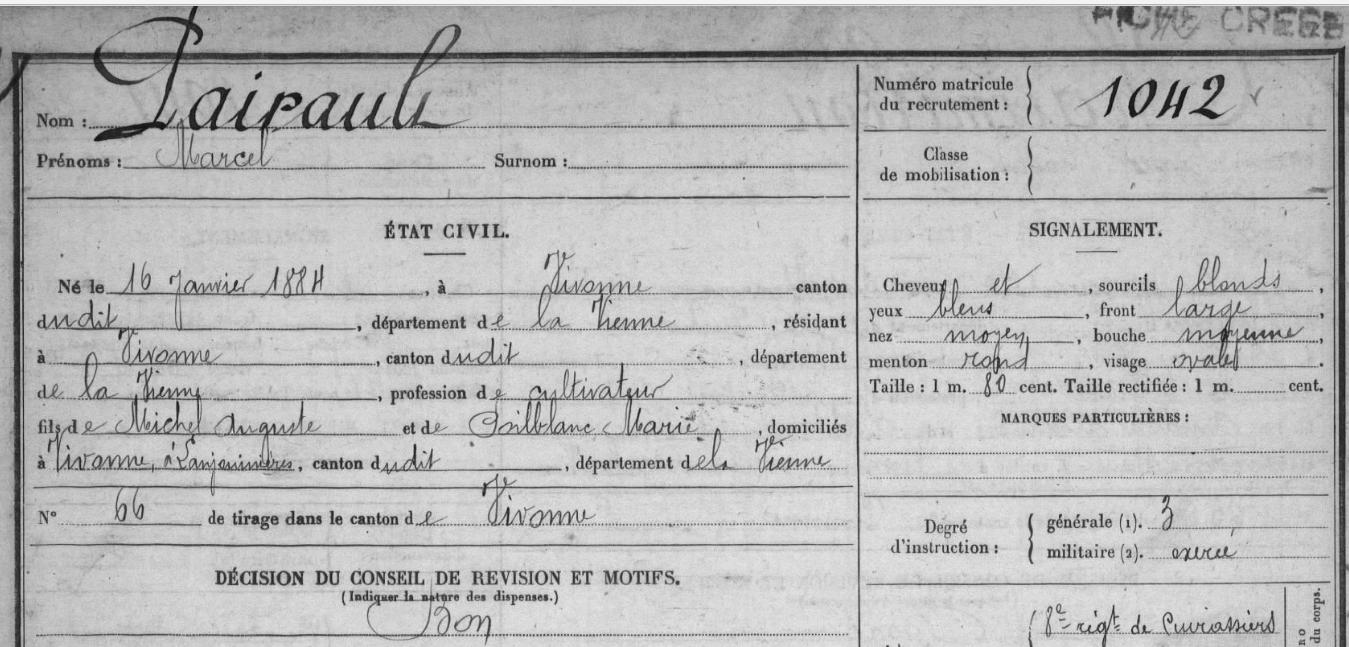 FICHE CRÉÉE
Nom : Pairault
Prénoms : Marcel Surnom :
Numéro matricule du recrutement : 1042
Classe de mobilisation :
ÉTAT CIVIL.
Né le 16 Janvier 1884, à Vivonne canton
dudit, département de la Vienne, résidant
à Vivonne, canton dudit, département
de la Vienne, profession de cultivateur
fils de Michel Auguste et de Poilblanc Marie, domiciliés
à Vivonne, à canton dudit, département de la Vienne
N° 66 de tirage dans le canton de Vivonne
DÉCISION DU CONSEIL DE REVISION ET MOTIFS.
(Indiquer la nature des dispenses.)
Bon
SIGNALEMENT.
Cheveux et, sourcils blonds,
yeux bleus, front large,
nez moyen, bouche moyenne
menton rond, visage ovale.
Taille : 1 m. 80 cent. Taille rectifiée : 1 m. cent.
MARQUES PARTICULIÈRES :
Degré d'instruction :
générale (1). 3
militaire (2). exercé
8e régt de Cuirassiers
du corps.